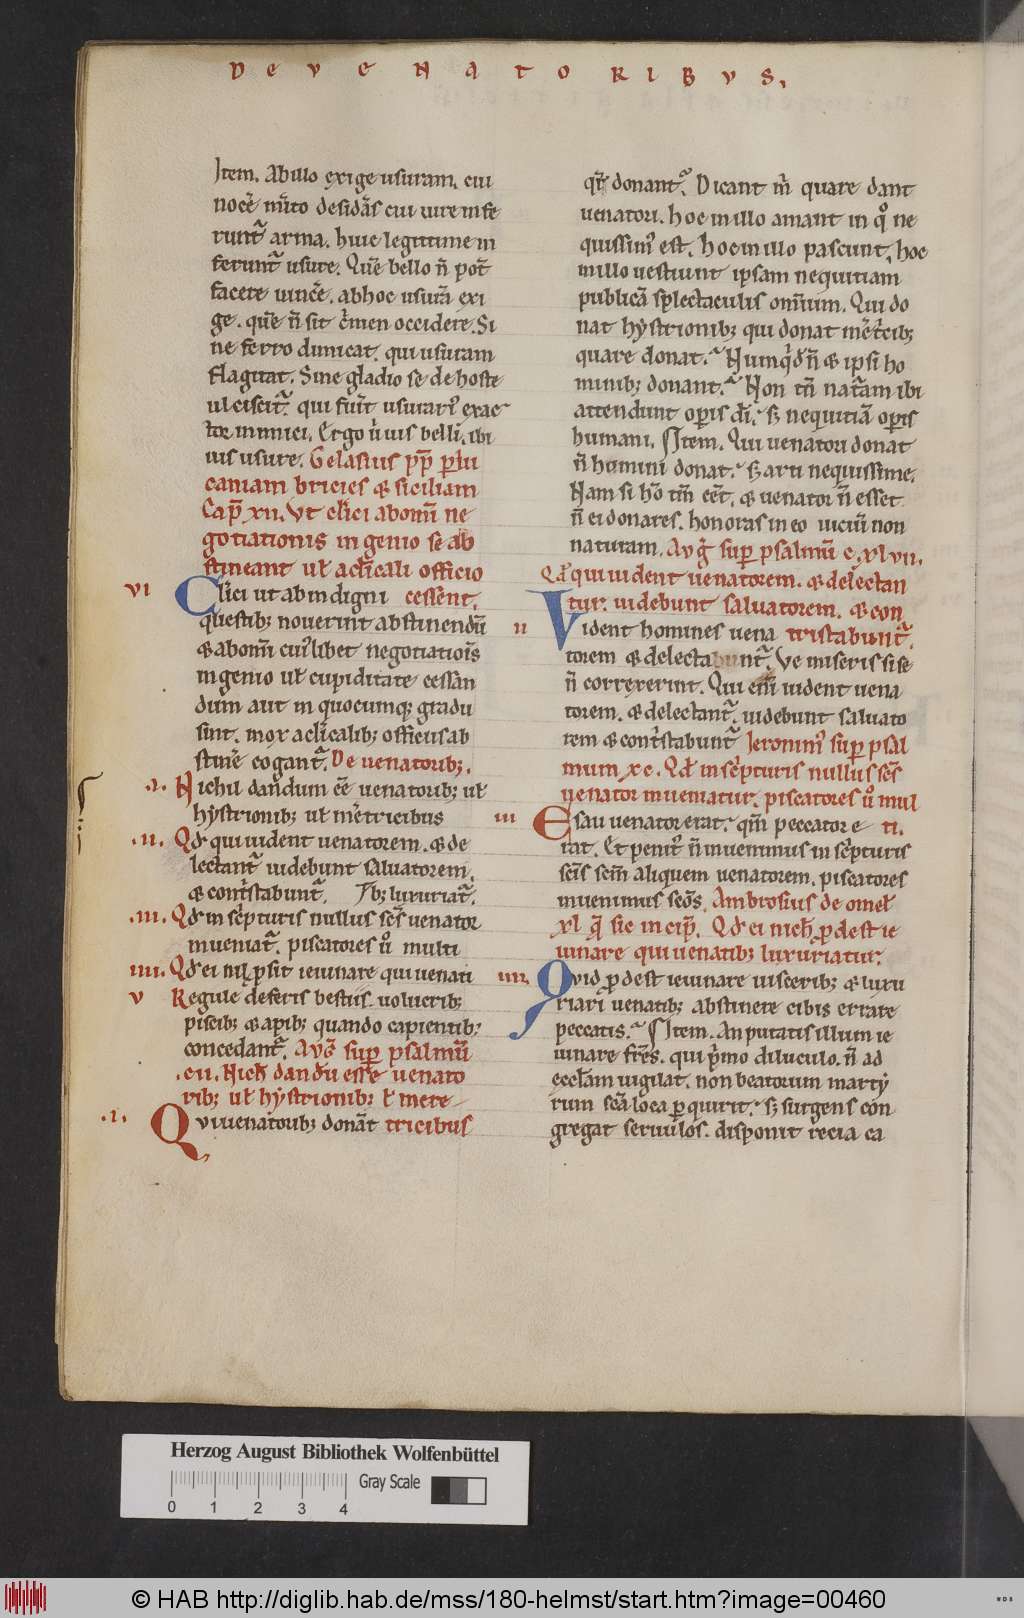 DE VENATORIBVS.
Item. Ab illo exige usuram. cui
nocẽ mĩto desidãs cui iure infe
runt᷑ arma. huic legittime in
ferunt᷑ usure. Quẽ bello ñ pot᷑
facere uincẽ. ab hoc usurã exi
ge. quẽ ñ sit c̾men occidere. Si
ne ferro dimicat. qui usuram
flagitat. Sine gladio se de hoste
ulciscit᷑. qui fuĩt usurariꝰ exac
tor inimici. Ergo ù ius belli. ibi
ius usure. Gelasius pp̃ p̱ lu
caniam bricies & siciliam
Cap̃ xii. Vt cl̃ici ab om̃i ne
gotiationis ingenio se ab
stineant ul̃ a cl̃icali officio
VI
Cl̃ici ut ab indigni cessent.
questib; nouerint abstinendũ
& ab om̃i cuiꝰlibet negotiatiois̃
ingenio ul̃ cupiditate cessan
dum aut in quocumq; gradu
sint. mox a cl̃icalib; officiis ab
stinẽ cogant᷑. De uenatorib;.
.I. Nichil dandum eẽ uenatorib; ul̃
hystrionib; ul̃ mẽtricibus
.II. Qd̃ qui uident uenatorem. & de
lectant᷑ uidebunt saluatorem.
& cont̾stabunt᷑. Ib; luxuriat᷑.
.III. Qd̃ in sc̾pturis nullus scs̃ uenator
inueniat᷑. piscatores ů multi
IIII. Qd̃ ei nil p̱sit ieiunare qui uenati
V Regule de feris bestiis. uolucrib;
piscib; & apib; quando capientib;
concedant᷑. Avg̃ sup̱ psalmũ
.cii. Nich̃ dandũ esse uenato
rib; ul̃ hystrionib; l̃ mere
.I.
Qvi uenatorib; donãt tricibus
qr̃ donant.ꝰ Dicant m̃ quare dant
uenatori. hoc in illo amant in qͦ ne
quissimꝰ est. hoc in illo pascunt. hoc
in illo uestiunt ipsam nequitiam
publicã splectaculis omium. Qui do
nat hystrionib; qui donat mẽt̾cib;
quare donat. Numq̾d ñ & ipsi ho
minib; donant. Non tñ nat᷑am ibi
attendunt opis̱ di᷑. sꝫ nequitiã opis̱
humani. Item. Qui uenatori donat
ñ homini donat. sꝫ arti nequissime.
Nam si hõ tm̃ eẽt. & uenator ñ esset
ñ ei donares. honoras in eo uiciũ non
naturam. Avg̃ sup̱ psalmũ c. xlvii.
Qd̃ qui uident uenatorem. & delectan
tur. uidebunt saluatorem. & con
II
Vident homines uena tristabunt᷑.
torem & delectabunt᷑. Ve miseris si se
ñ correxerint. Qui eni᷑ uident uena
torem. & delectant᷑. uidebunt saluato
rem & cont̾stabunt᷑ Ieronimꝰ sup̱ psal
mum xc. Qd̃ in sc̾pturis nullus scs̃
uenator inueniatur. piscatores ů mul
III
Esau uenator erat. qm̃ peccator e ti.
rat. Et penitꝰ ñ inuenimus in sc̾pturis
scis̃ scm̃ aliquem uenatorem. piscatores
inuenimus scõs. Ambrosius de omel̃
xl q̃ sic incip̃. Qd̃ ei nich̃ p̱dest ie
iunare qui uenatib; luxuriatur.
IIII.
Qvid p̱dest ieiunare uiscerib; & luxu
riari uenatib; abstinere cibis errare
peccatis. Item. An putatis illum ie
iunare frẽs. qui p̾mo diluculo. ñ ad
eccl̃am uigilat. non beatorum marty
rum scã loca p̱quirit. sꝫ surgens con
gregat seruulos. disponit recia ca
Herzog August Bibliothek Wolfenbüttel
Gray Scale
0 1 2 3 4
© HAB http://diglib.hab.de/mss/180-helmst/start.htm?image=00460